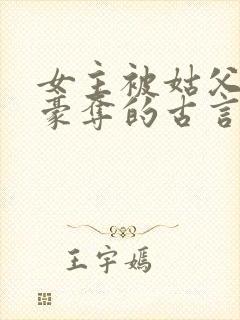 女主被姑父
豪夺的古言
王宇嫣